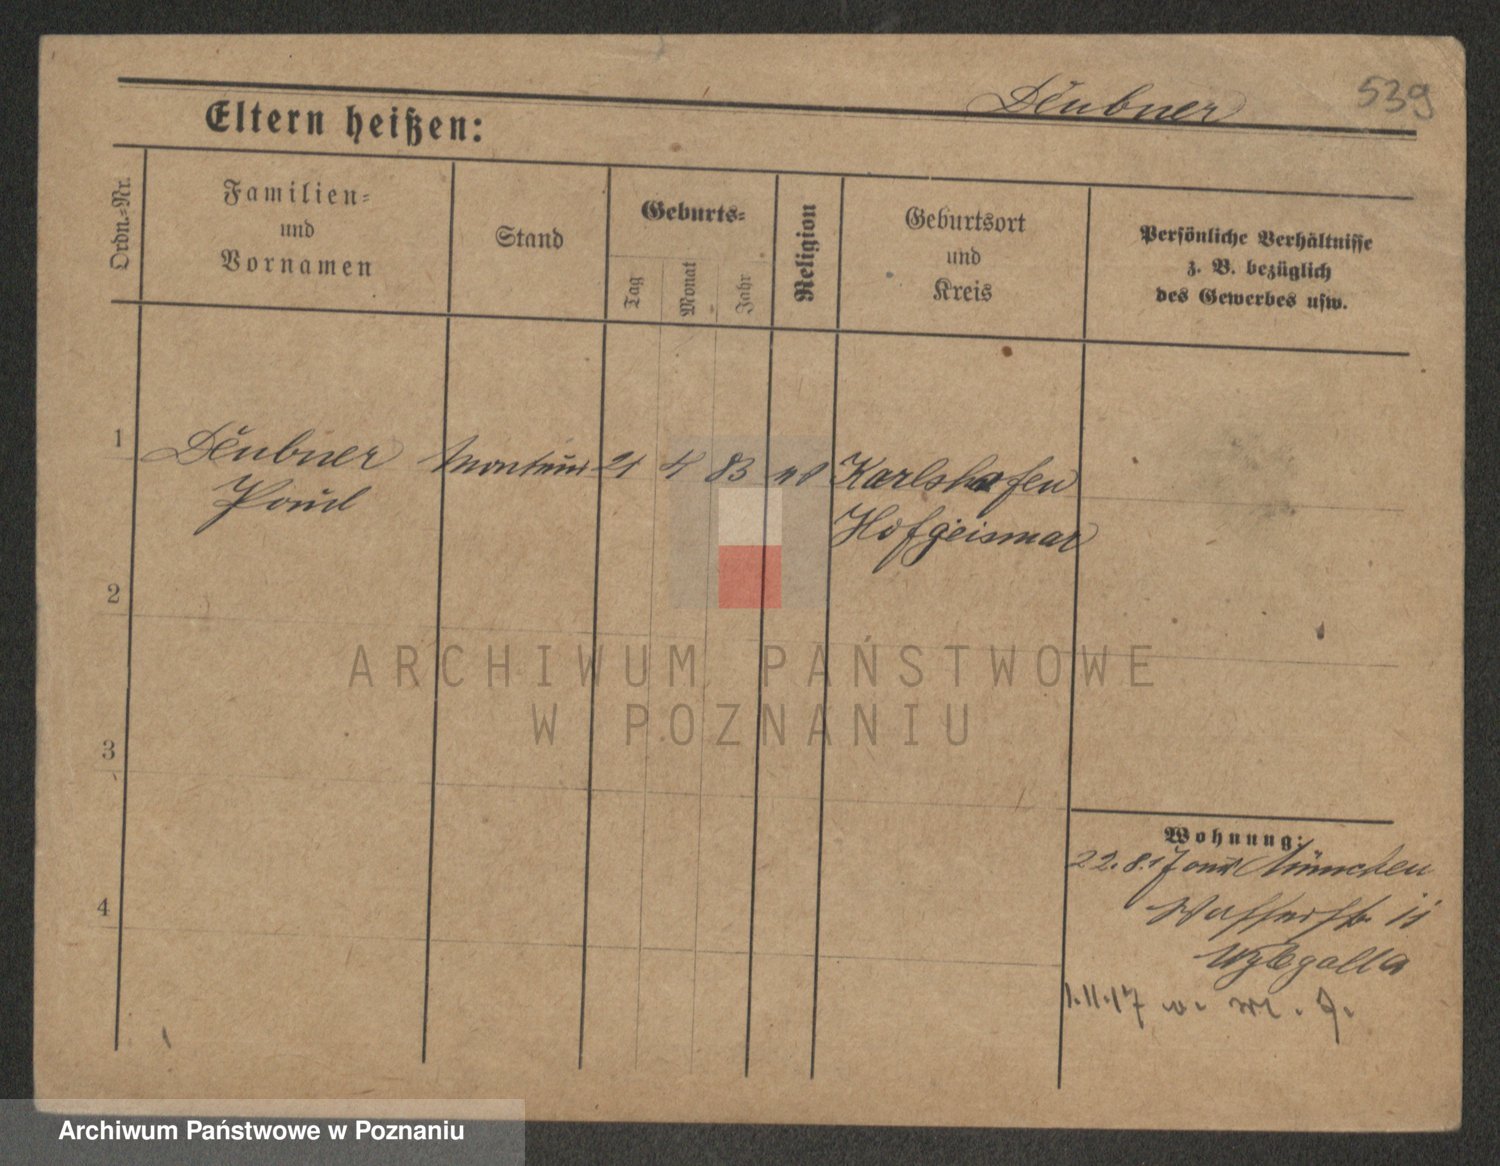 539
Deubner
Eltern heißen:
Ordn.-Nr.
Familien-
und
Vornamen
Stand
Geburts-
Tag
Monat
Jahr
Religion
Geburtsort
und
Kreis
Persönliche Verhältnisse
z. B. bezüglich
des Gewerbes usw.
1
Deubner
Paul
Monteur
21
4
83
Karlshafen
Hofgeismar
2
3
4
Wohnung:
22.8.17 aus München
Wasserstr. 11
Wylegalla
1.11.17 v. M. J.
ARCHIWUM PAŃSTWOWE
W POZNANIU
Archiwum Państwowe w Poznaniu